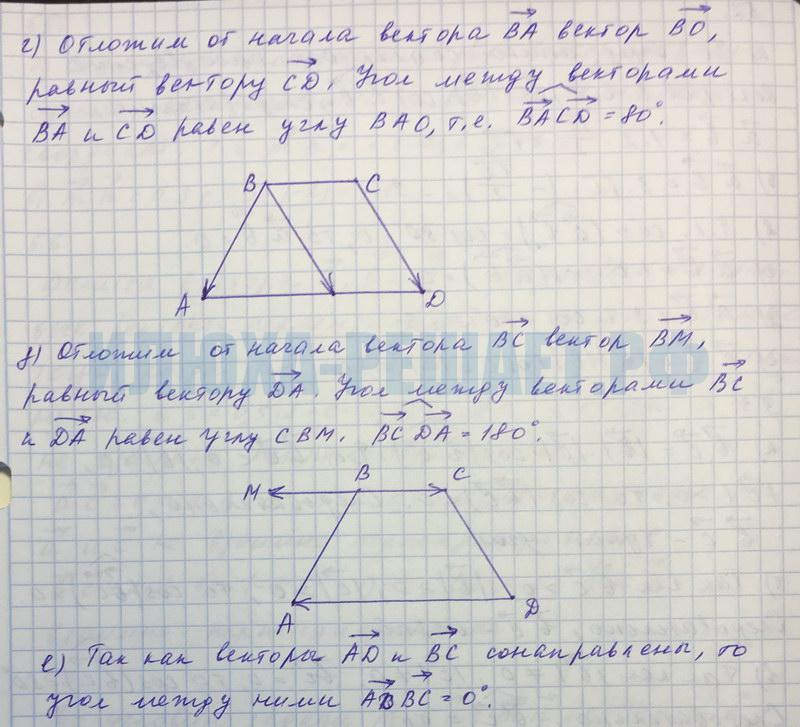 г) Отложим от начала вектора BA вектор BO,
равный вектору CD. Угол между векторами
BA и CD равен углу BAO, т.е. BA CD = 80°.
B C
A D
ИЛЮХА-РЕШАЕТ.РФ
д) Отложим от начала вектора BC вектор BM,
равный вектору DA. Угол между векторами BC
и DA равен углу CBM. BC DA = 180°.
M B C
A D
е) Так как векторы AD и BC сонаправлены, то
угол между ними AD BC = 0°.